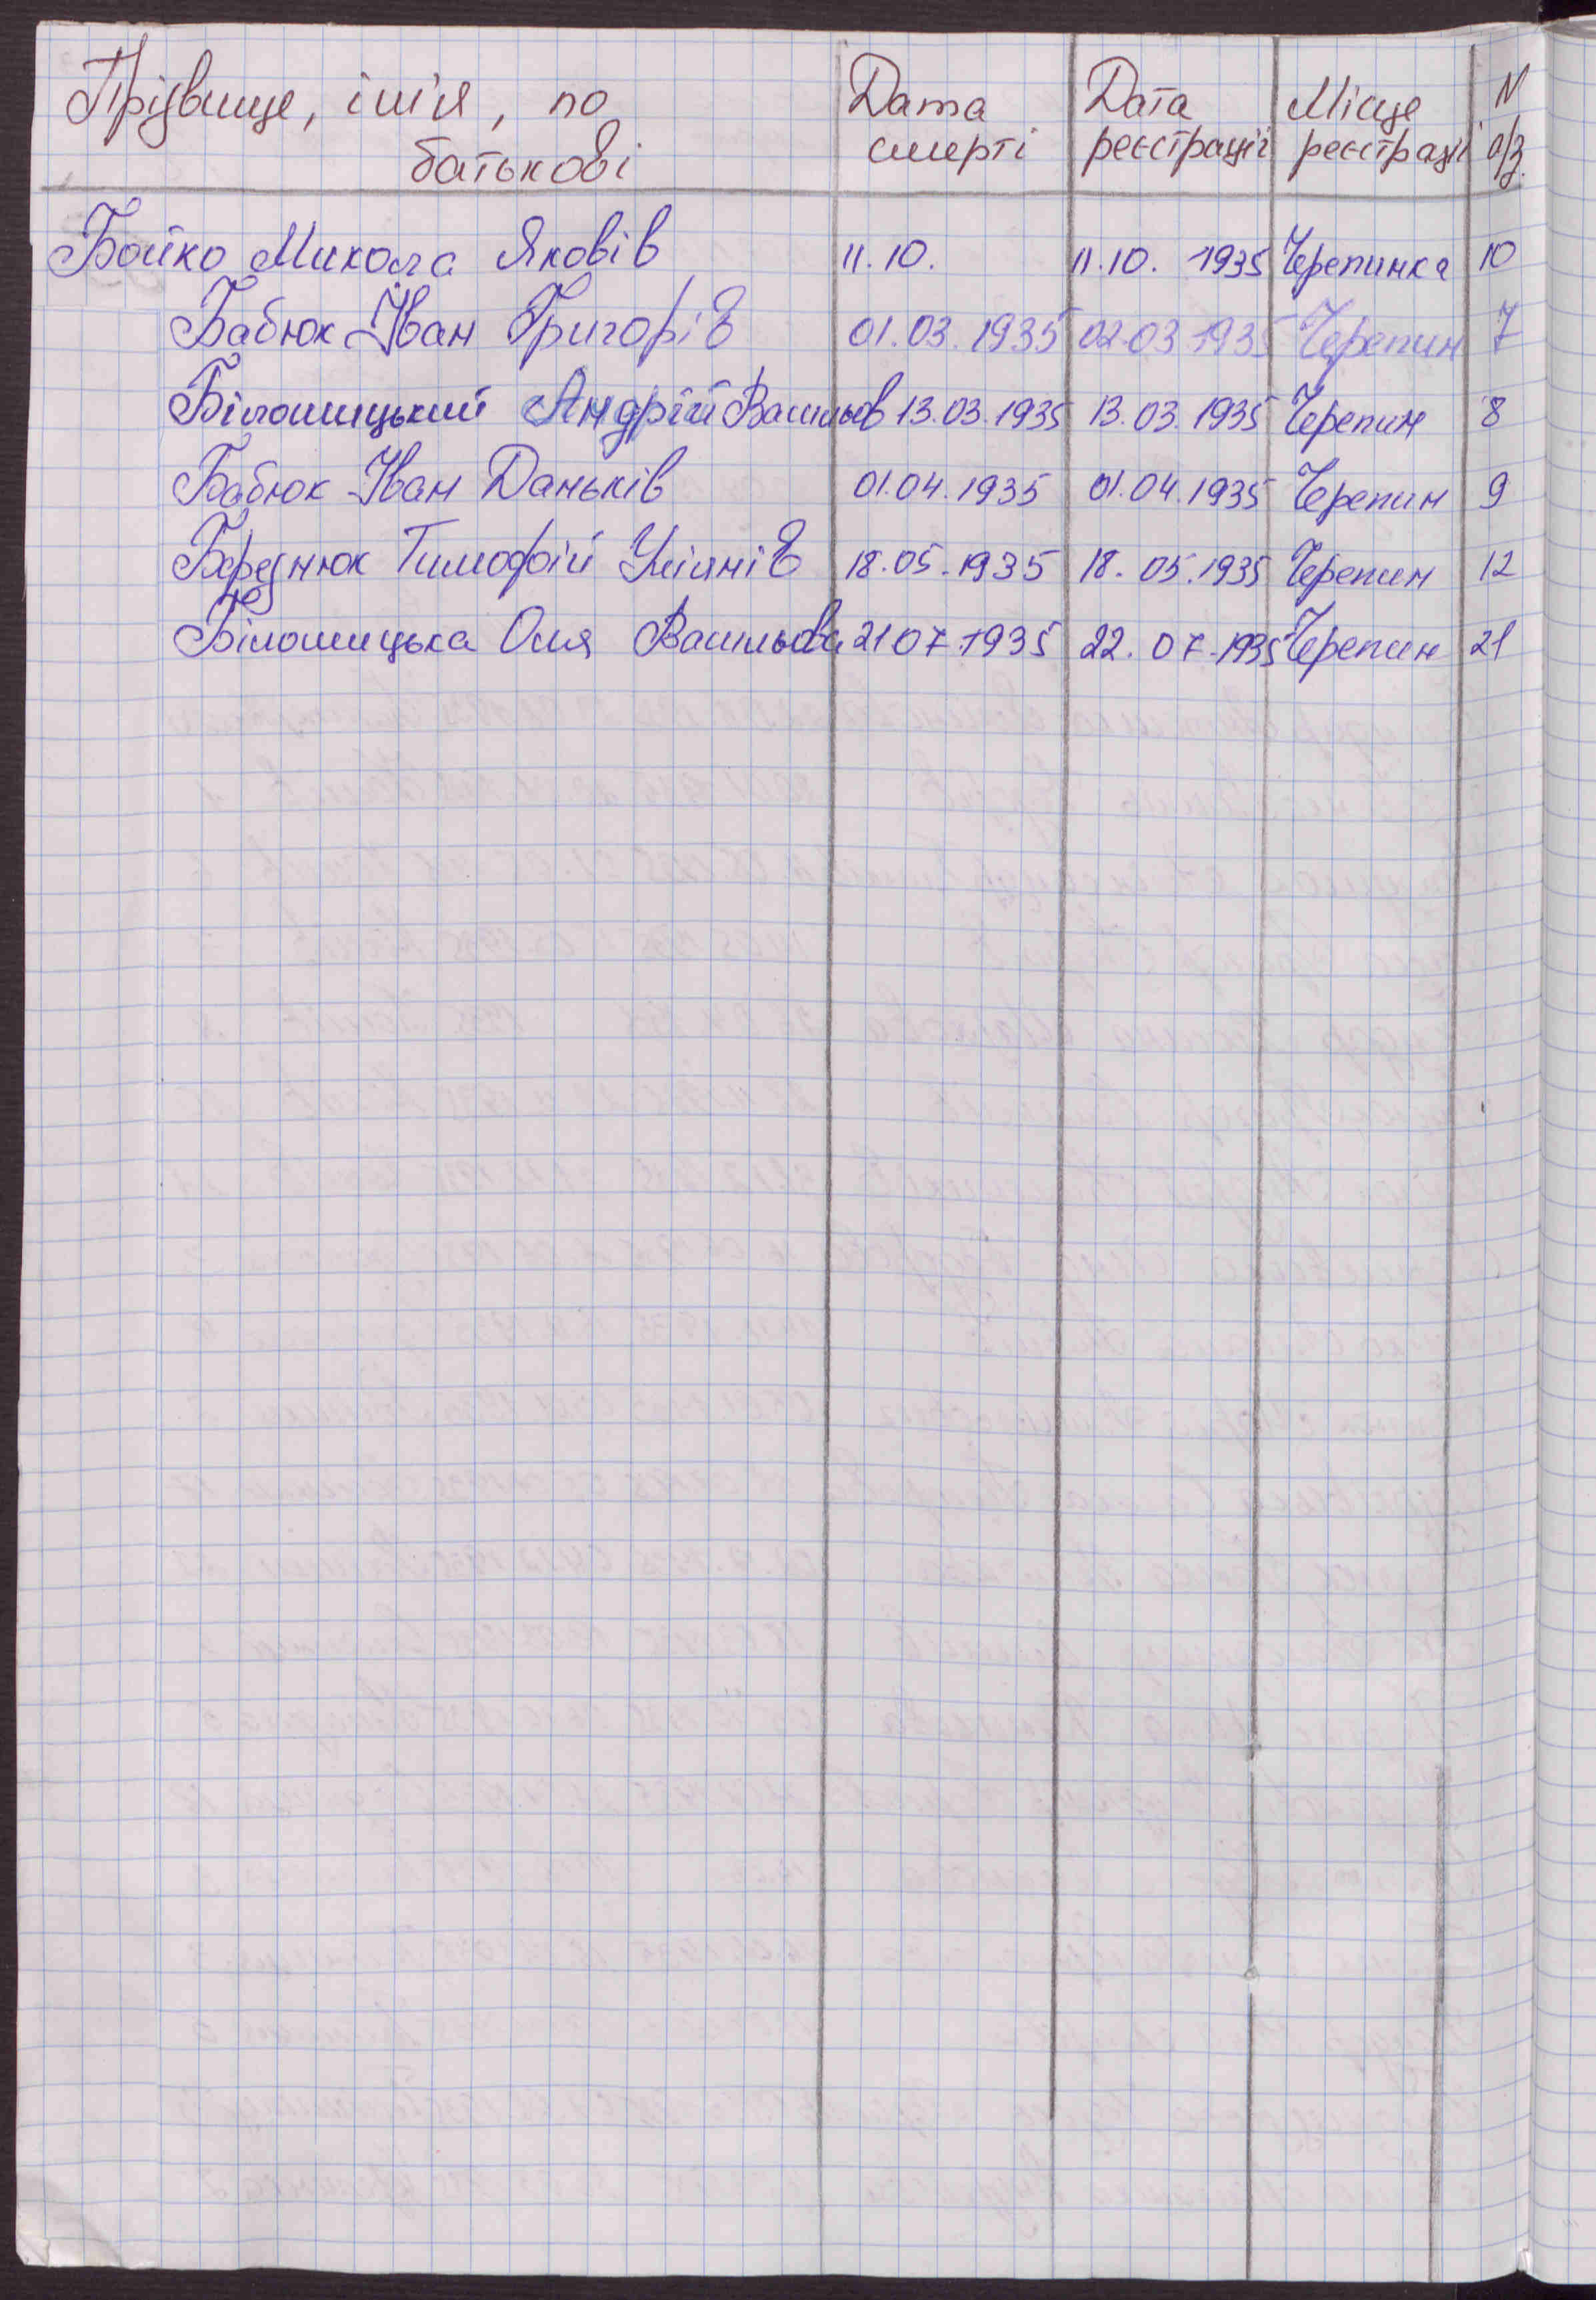 Прізвище, ім'я, по Дата Дата Місце N
батькові смерті реєстрації реєстрації а/з.
Бойко Микола Яковів 11.10. 11.10. 1935 Черепинка 10
Бабюк Іван Григорів 01.03.1935 02.03 1935 Черепин 7
Білошицький Андрій Васильов 13.03.1935 13.03.1935 Черепин 8
Бабюк Іван Даньків 01.04.1935 01.04.1935 Черепин 9
Тимофій Уліянів 18.05.1935 18.05.1935 Черепин 12
Білошицька Оля Васильова 21 07.1935 22.07.1935 Черепин 21